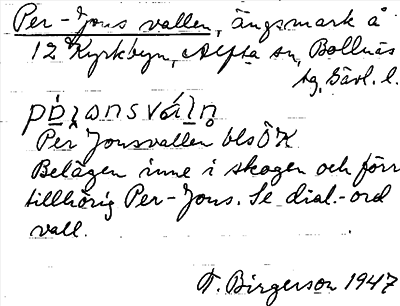 Per-Jons vallen, ängsmark å
12 Kyrkbyn, Alfta sn, Bollnäs
tg, Gävl. l.
Per Jonsvallen bls ÖK
Belägen inne i skogen och förr
tillhörig Per-Jons. Se dial.-ord
vall.
F. Birgerson 1947